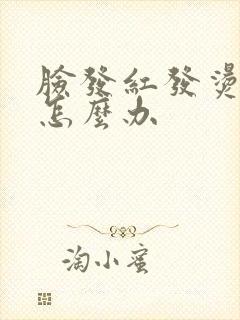 臉發紅發燙
怎麼办
淘小蜜